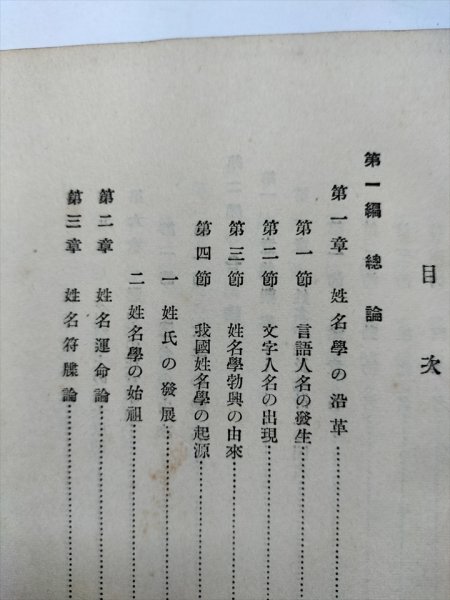 目次
第一編 總論
第一章 姓名學の沿革
第一節 言語人名の發生
第二節 文字人名の出現
第三節 姓名學勃興の由來
第四節 我國姓名學の起源
一 姓氏の發展
二 姓名學の始祖
第二章 姓名運命論
第三章 姓名符牒論